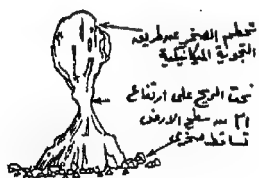 تحطم الصخر عن طريق
التجوية الميكانيكية
نحت الريح على ارتفاع
١م من سطح الأرض
تساقط صخرى